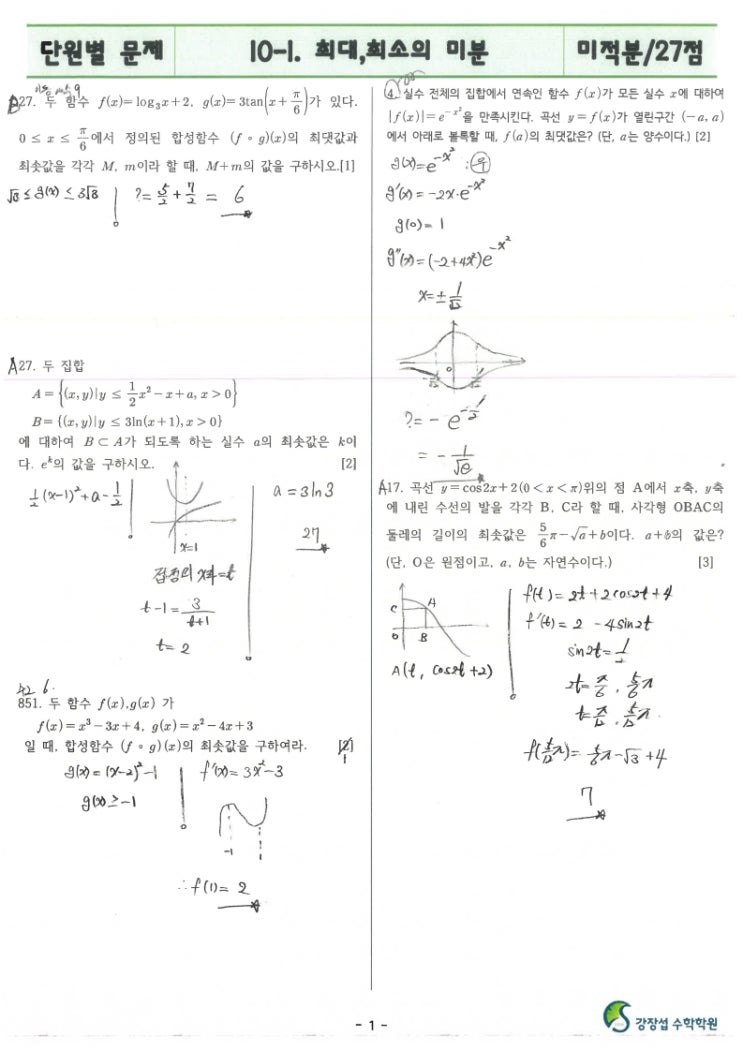 단원별 문제
10-1. 최대,최소의 미분
미적분/27점
B27. 두 함수 f(x)=log₃x+2, g(x)=3tan(x+π/6)가 있다.
0≤x≤π/6에서 정의된 합성함수 (f∘g)(x)의 최댓값과
최솟값을 각각 M, m이라 할 때, M+m의 값을 구하시오.[1]
√3≤g(x)≤3√3
?=5/2+7/2=6
A27. 두 집합
A={(x,y)|y≤1/2x²-x+a, x>0}
B={(x,y)|y≤3ln(x+1), x>0}
에 대하여 B⊂A가 되도록 하는 실수 a의 최솟값은 k이
다. eᵏ의 값을 구하시오. [2]
1/2(x-1)²+a-1/2
x=1
접점의 x좌표=t
t-1=3/(t+1)
t=2
a=3ln3
27
851. 두 함수 f(x),g(x) 가
f(x)=x³-3x+4, g(x)=x²-4x+3
일 때, 합성함수 (f∘g)(x)의 최솟값을 구하여라. [2]
1
g(x)=(x-2)²-1
g(x)≥-1
f'(x)=3x²-3
-1 1
∴f(1)=2
4. 실수 전체의 집합에서 연속인 함수 f(x)가 모든 실수 x에 대하여
|f(x)|=e^(-x²)을 만족시킨다. 곡선 y=f(x)가 열린구간 (-a, a)
에서 아래로 볼록할 때, f(a)의 최댓값은? (단, a는 양수이다.) [2]
g(x)=e^(-x²) : 우
g'(x)=-2x·e^(-x²)
g(0)=1
g''(x)=(-2+4x²)e^(-x²)
x=±1/√2
0
-1/√2 1/√2
?=-e^(-1/2)
=-1/√e
A17. 곡선 y=cos2x+2(0<x<π)위의 점 A에서 x축, y축
에 내린 수선의 발을 각각 B, C라 할 때, 사각형 OBAC의
둘레의 길이의 최솟값은 5/6π-√a+b이다. a+b의 값은?
(단, O은 원점이고, a, b는 자연수이다.) [3]
C A
0 B
A(t, cos2t+2)
f(t)=2t+2cos2t+4
f'(t)=2-4sin2t
sin2t=1/2
2t=π/6, 5/6π
t=π/12, 5/12π.
f(5/12π)=5/6π-√3+4
7
- 1 -
강장섭 수학학원